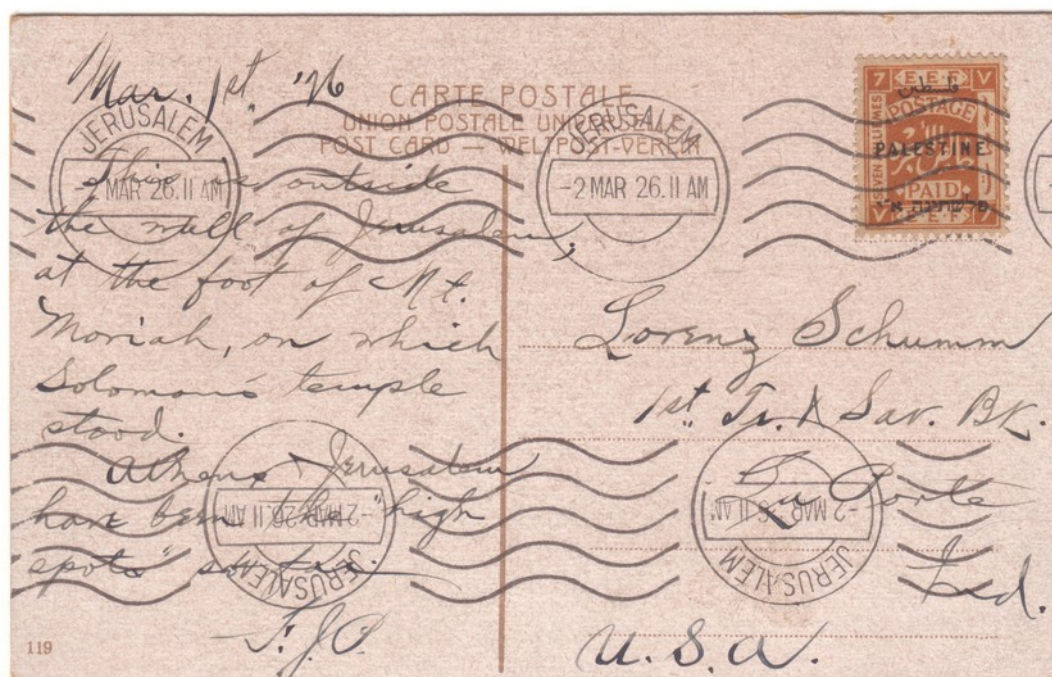 Mar. 1st '26
CARTE POSTALE
UNION POSTALE UNIVERSELLE
POST CARD — WELTPOST-VEREIN
JERUSALEM
-2 MAR 26.11 AM
JERUSALEM
-2 MAR 26.11 AM
7 E.E.F V
POSTAGE
فلسطين
PALESTINE
PAID
SEVEN MILLIEMES
פלשתינה א״י
V E.E.F 7
This is outside
the wall of Jerusalem,
at the foot of Mt.
Moriah, on which
Solomon's temple
stood.
Athens & Jerusalem
have been the "high
spots" so far.
F.J.P.
Lorenz Schumm
1st Tr. & Sav. Bk.
La Porte
Ind.
U.S.A.
JERUSALEM
-2 MAR 26.11 AM
JERUSALEM
-2 MAR 26.11 AM
119